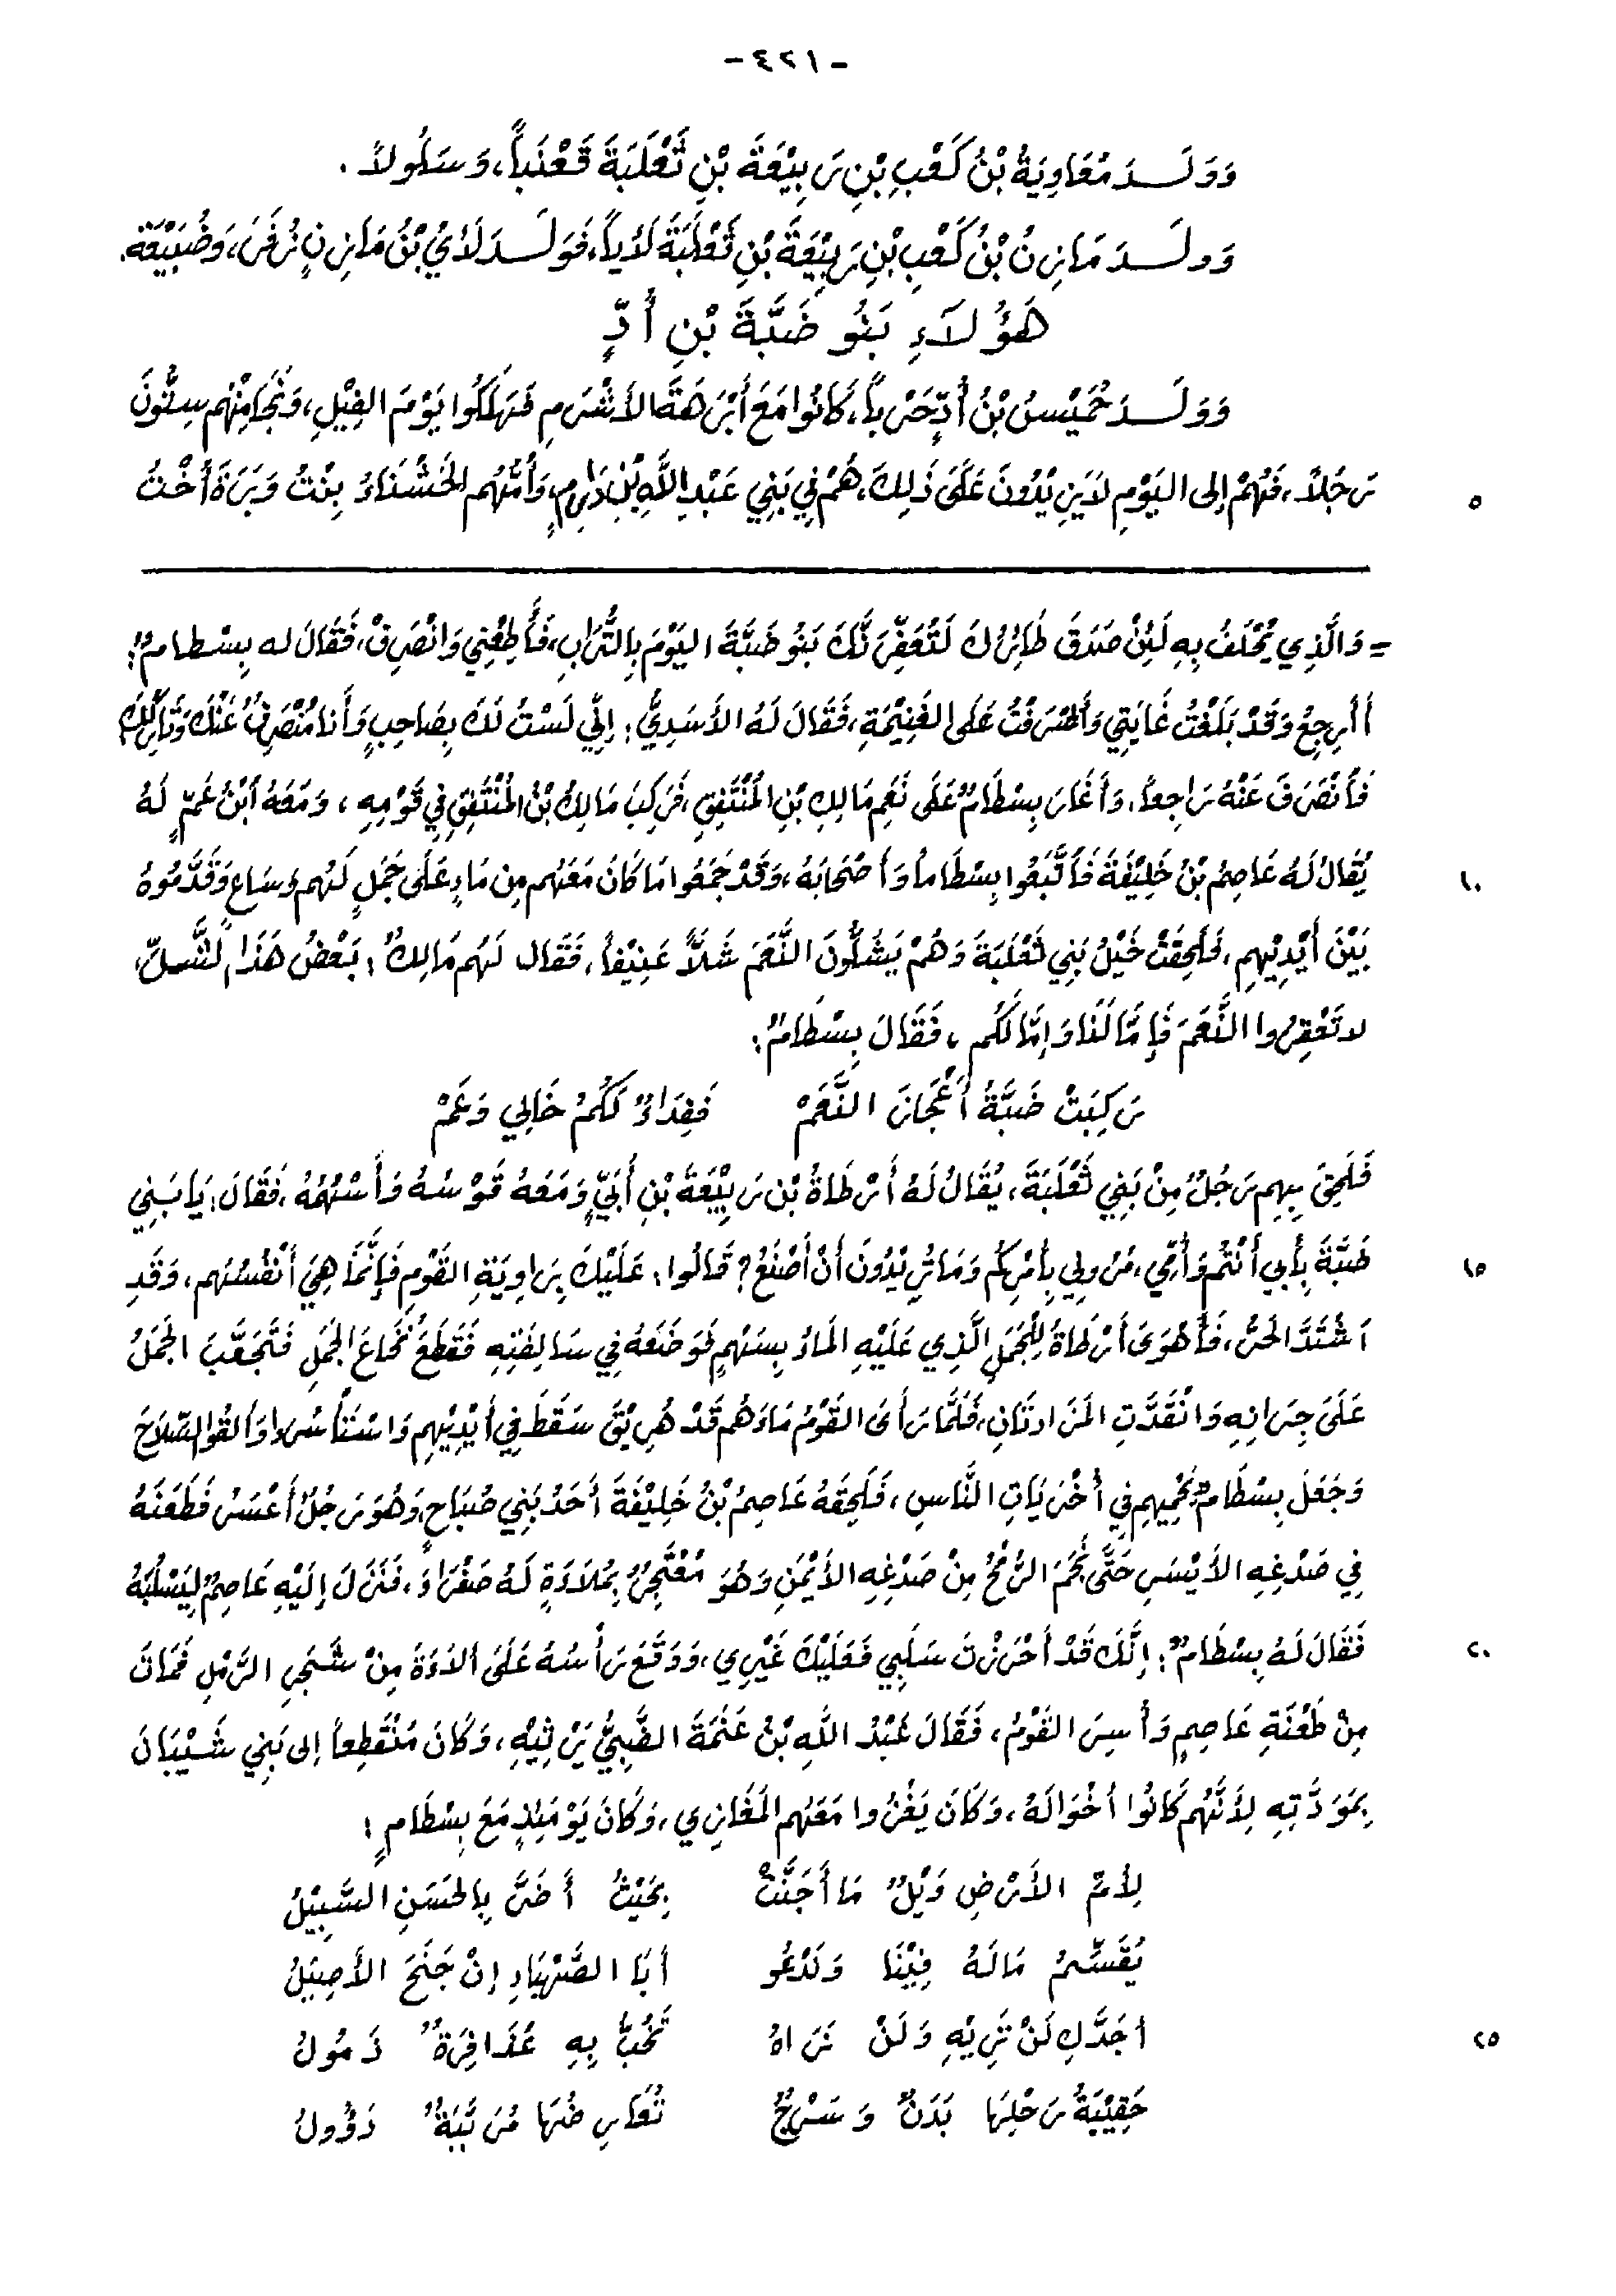 - ٤٢١ -
وَوَلَدَ مُعَاوِيَةُ بْنُ كَعْبِ بْنِ رَبِيْعَةَ بْنِ ثَعْلَبَةَ قَعْنَباً، وَسَلُولاً.
وَولَدَ مَازِنُ بْنُ كَعْبِ بْنِ رَبِيْعَةَ بْنِ ثَعْلَبَةَ لَأْياً، فَوَلَدَ لَأْيُ بْنُ مَازِنٍ زُفَرَ، وَضُبَيْعَةَ.
هَؤُلاَءِ بَنُو ضَبَّةَ بْنِ أُدٍّ
وَوَلَدَ خُمَيْسُ بْنُ أُدٍّ حَرْباً، كَانُوا مَعَ أَبْرَهَةَ الأَشْرَمِ فَهَلَكُوا يَوْمَ الفِيْلِ، وَنَجَا مِنْهُم سِتُّونَ
رَجُلاً، فَهُمْ إلى اليَوْمِ لاَ يَزِيْدُونَ عَلَى ذَلِكَ، هُمْ فِي بَنِي عَبْدِ اللَّهِ بْنِ دَارِمٍ، وَأُمُّهُم الخَشْنَاءُ بِنْتُ وَبَرَةَ أُخْتُ
٥
= وَالَّذِي يُحْلَفُ بِهِ لَئِنْ صَدَقَ طَائِرُكَ لَتُعَفِّرَنَّكَ بَنُو ضَبَّةَ اليَوْمَ بِالتُّرَابِ، فَأَطِعْنِي وَانْصَرِفْ، فَقَالَ له بِسْطامٌ:
أَأَرجِعُ وَقَدْ بَلَغْتُ غَايَتِي وَأَشْرَفْتُ عَلَى الغَنِيْمَةِ، فَقَالَ لَهُ الأَسَدِيُّ: إنِّي لَسْتُ لَكَ بِصَاحِبٍ وَأَنا مُنْصَرِفٌ عَنْكَ وَتَارِكُكَ
فَأنْصَرَفَ عَنْهُ رَاجِعاً، وَأَغَارَ بِسْطَامٌ عَلَى نَعَمِ مَالِكِ بْنِ المُنْتَفِقِ، فَرَكِبَ مَالِكُ بْنُ المُنْتَفِقِ فِي قَوْمِهِ، وَمَعَهُ ابْنُ عَمٍّ لَهُ
يُقَالُ لَهُ عَاصِمُ بْنُ خَلِيْفَةَ فَاتَّبَعُوا بِسْطَاماً وَأَصْحَابَهُ، وَقَدْ جَمَعُوا مَا كَانَ مَعَهُم مِن مَاءٍ عَلَى جَمَلٍ لَهُم وَسَاعٍ وَقَدَّمُوهُ
١٠
بَيْنَ أَيْدِيْهِم، فَلَحِقَتْ خَيْلُ بَنِي ثَعْلَبَةَ وَهُمْ يَشُلُّونَ النَّعَمَ شَلاًّ عَنِيْفاً، فَقَال لَهُم مَالِكٌ: بَعْضُ هَذَا الشَّلِّ،
لا تَعْقِرُوا النَّعَمَ فَإِمَّا لَنَا وَإِمَّا لَكُم، فَقَالَ بِسْطَامٌ:
رَكِبَتْ ضَبَّةُ أَعْجَازَ النَّعَمْ فَفِدَاءٌ لَكُمْ خَالِي وَعَمْ
فَلَحِقَ بِهِم رَجُلٌ مِنْ بَنِي ثَعْلَبَةَ، يُقَالُ لَهُ أَرْطَاةُ بْن رَبِيْعَةَ بْنِ أُبَيٍّ وَمَعَهُ قَوْسُهُ وَأَسْهُمُهُ، فَقَالَ: يَا بَنِي
ضَبَّةَ بِأَبِي أَنْتُم وَأُمِّي، مَنْ وَلِي بِأَمْرِكُم وَمَا تُرِيْدُونَ أَنْ أَصْنَعَ؟ قَالُوا: عَلَيْكَ بِرَاوِيَةِ القَوْمِ فَإِنَّمَا هِيَ أَنْفُسُهُم، وَقَدِ
١٥
اشْتَدَّ الحَرُّ، فَأَهْوَى أَرْطَاةُ لِلْجَمَلِ الَّذِي عَلَيْهِ المَاءُ بِسَهْمٍ فَوَضَعَهُ فِي سَالِفَتِهِ فَقَطَعَ نُخَاعَ الجَمَلِ فَتَجَعَّبَ الجَمَلُ
عَلَى جِرَانِهِ وَانْقَدَّتِ المَزَادتَانِ، فَلَمَّا رَأَى القَوْمُ مَاءَهُم قَدْ هُرِيْقَ سَقَطَ فِي أَيْدِيْهِم وَاسْتَأْسَرُوا وَأَلقُوا السِّلاَحَ
وَجَعَلَ بِسْطَامٌ يَحْمِيهِم فِي أُخْرَيَاتِ النَّاسِ، فَلَحِقَهُ عَاصِمُ بْنُ خَلِيْفَةَ أَحَدُ بَنِي صُبَاحٍ، وَهُوَ رَجُلٌ أَعْسَرُ فَطَعَنَهُ
فِي صَدْغِهِ الأَيْسَرِ حَتَّى نَجَمَ الرُّمْحُ مِنْ صَدْغِهِ الأَيْمَنِ وَهُوَ مُعْتَجِرٌ بِمُلاَءَةٍ لَهُ صَفْرَاءَ، فَنَزَلَ إِلَيْهِ عَاصِمٌ لِيَسْلُبَهُ
فَقَالَ لَهُ بِسْطَامٌ: إِنَّكَ قَدْ أَحْرَزْتَ سَلَبِي فَعَلَيْكَ غَيْرِي، وَوَقَعَ رَأْسُهُ عَلَى أَلاَءَةَ مِنْ شَجَرِ الرَّمْلِ فَمَاتَ
٢٠
مِنْ طَعْنَةِ عَاصِمٍ وَأُسِرَ القَوْمُ، فَقَالَ عَبْدُ اللَّهِ بْنُ عَنَمَةَ الضَّبِيُّ يَرْثِيْهِ، وَكَانَ مُنْقَطِعاً إلى بَنِي شَيْبَانَ
بِمَوَدَّتِهِ لِأَنَّهُم كَانُوا أَخْوَالَهُ، وَكَانَ يَغْزُوا مَعَهُم المَغَازِي، وَكَانَ يَوْمَئِذٍ مَعَ بِسْطَامٍ:
لِأُمِّ الأَرْضِ وَيْلٌ مَا أَجَنَّتْ بِحَيْثُ أَضَرَّ بِالحَسَنِ السَّبِيْلُ
يُقَسِّمُ مَالَهُ فِيْنَا وَنَدْعُو أَبَا الصَّهْبَاءِ إِنْ جَنَحَ الأَصِيْلُ
أَجَدَّكِ لَنْ تَرِيْهِ وَلَنْ نَرَاهُ تَخُبُّ بِهِ عُذَافِرَةٌ ذَمُولُ
٢٥
حَقِيْبَةُ رَحْلِهَا بَدَنٌ وَسَرْجٌ تُعَارِضُهَا مُرَبَّبَةٌ ذَؤُولُ